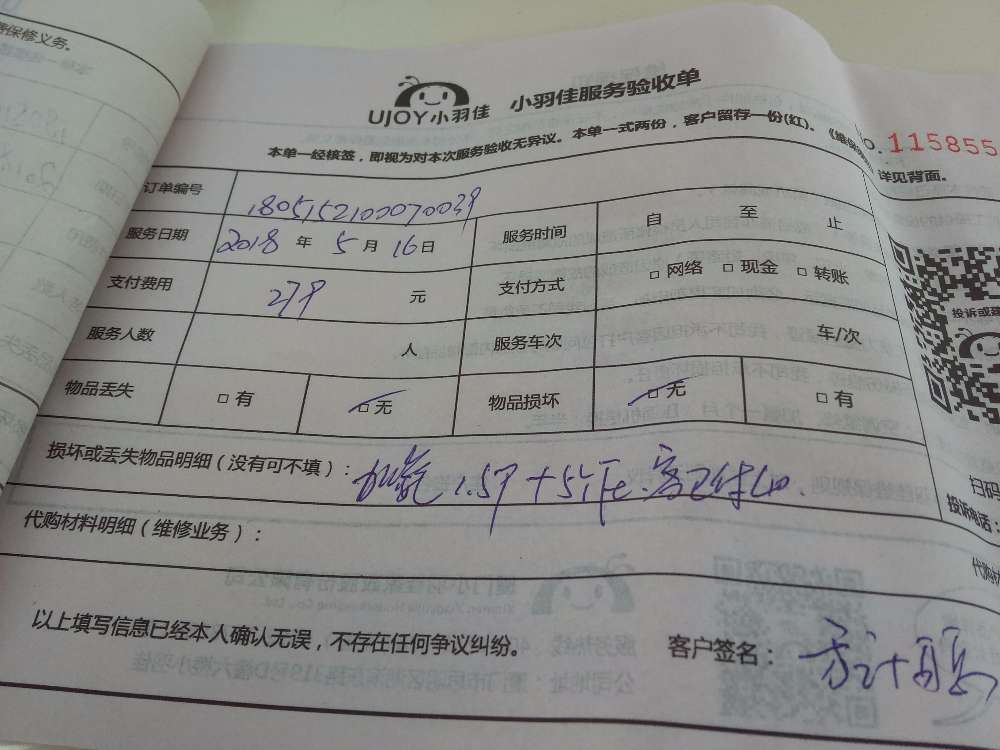 费保修义务。
UJOY小羽佳 小羽佳服务验收单
本单一经核签，即视为对本次服务验收无异议。本单一式两份，客户留存一份(红)。《维保
详见背面。
O. 115855
订单编号 1805152100070039
服务日期 2018 年 5 月 16 日 服务时间 自 至 止
支付费用 279 元 支付方式 □ 网络 □ 现金 □ 转账
服务人数 人 服务车次 车/次
物品丢失 □ 有 □ 无 物品损坏 □ 无 □ 有
投诉或建
损坏或丢失物品明细（没有可不填）： 加氟 1.5P
扫码
投诉电话：
代购材料明细（维修业务）：
以上填写信息已经本人确认无误，不存在任何争议纠纷。 客户签名：